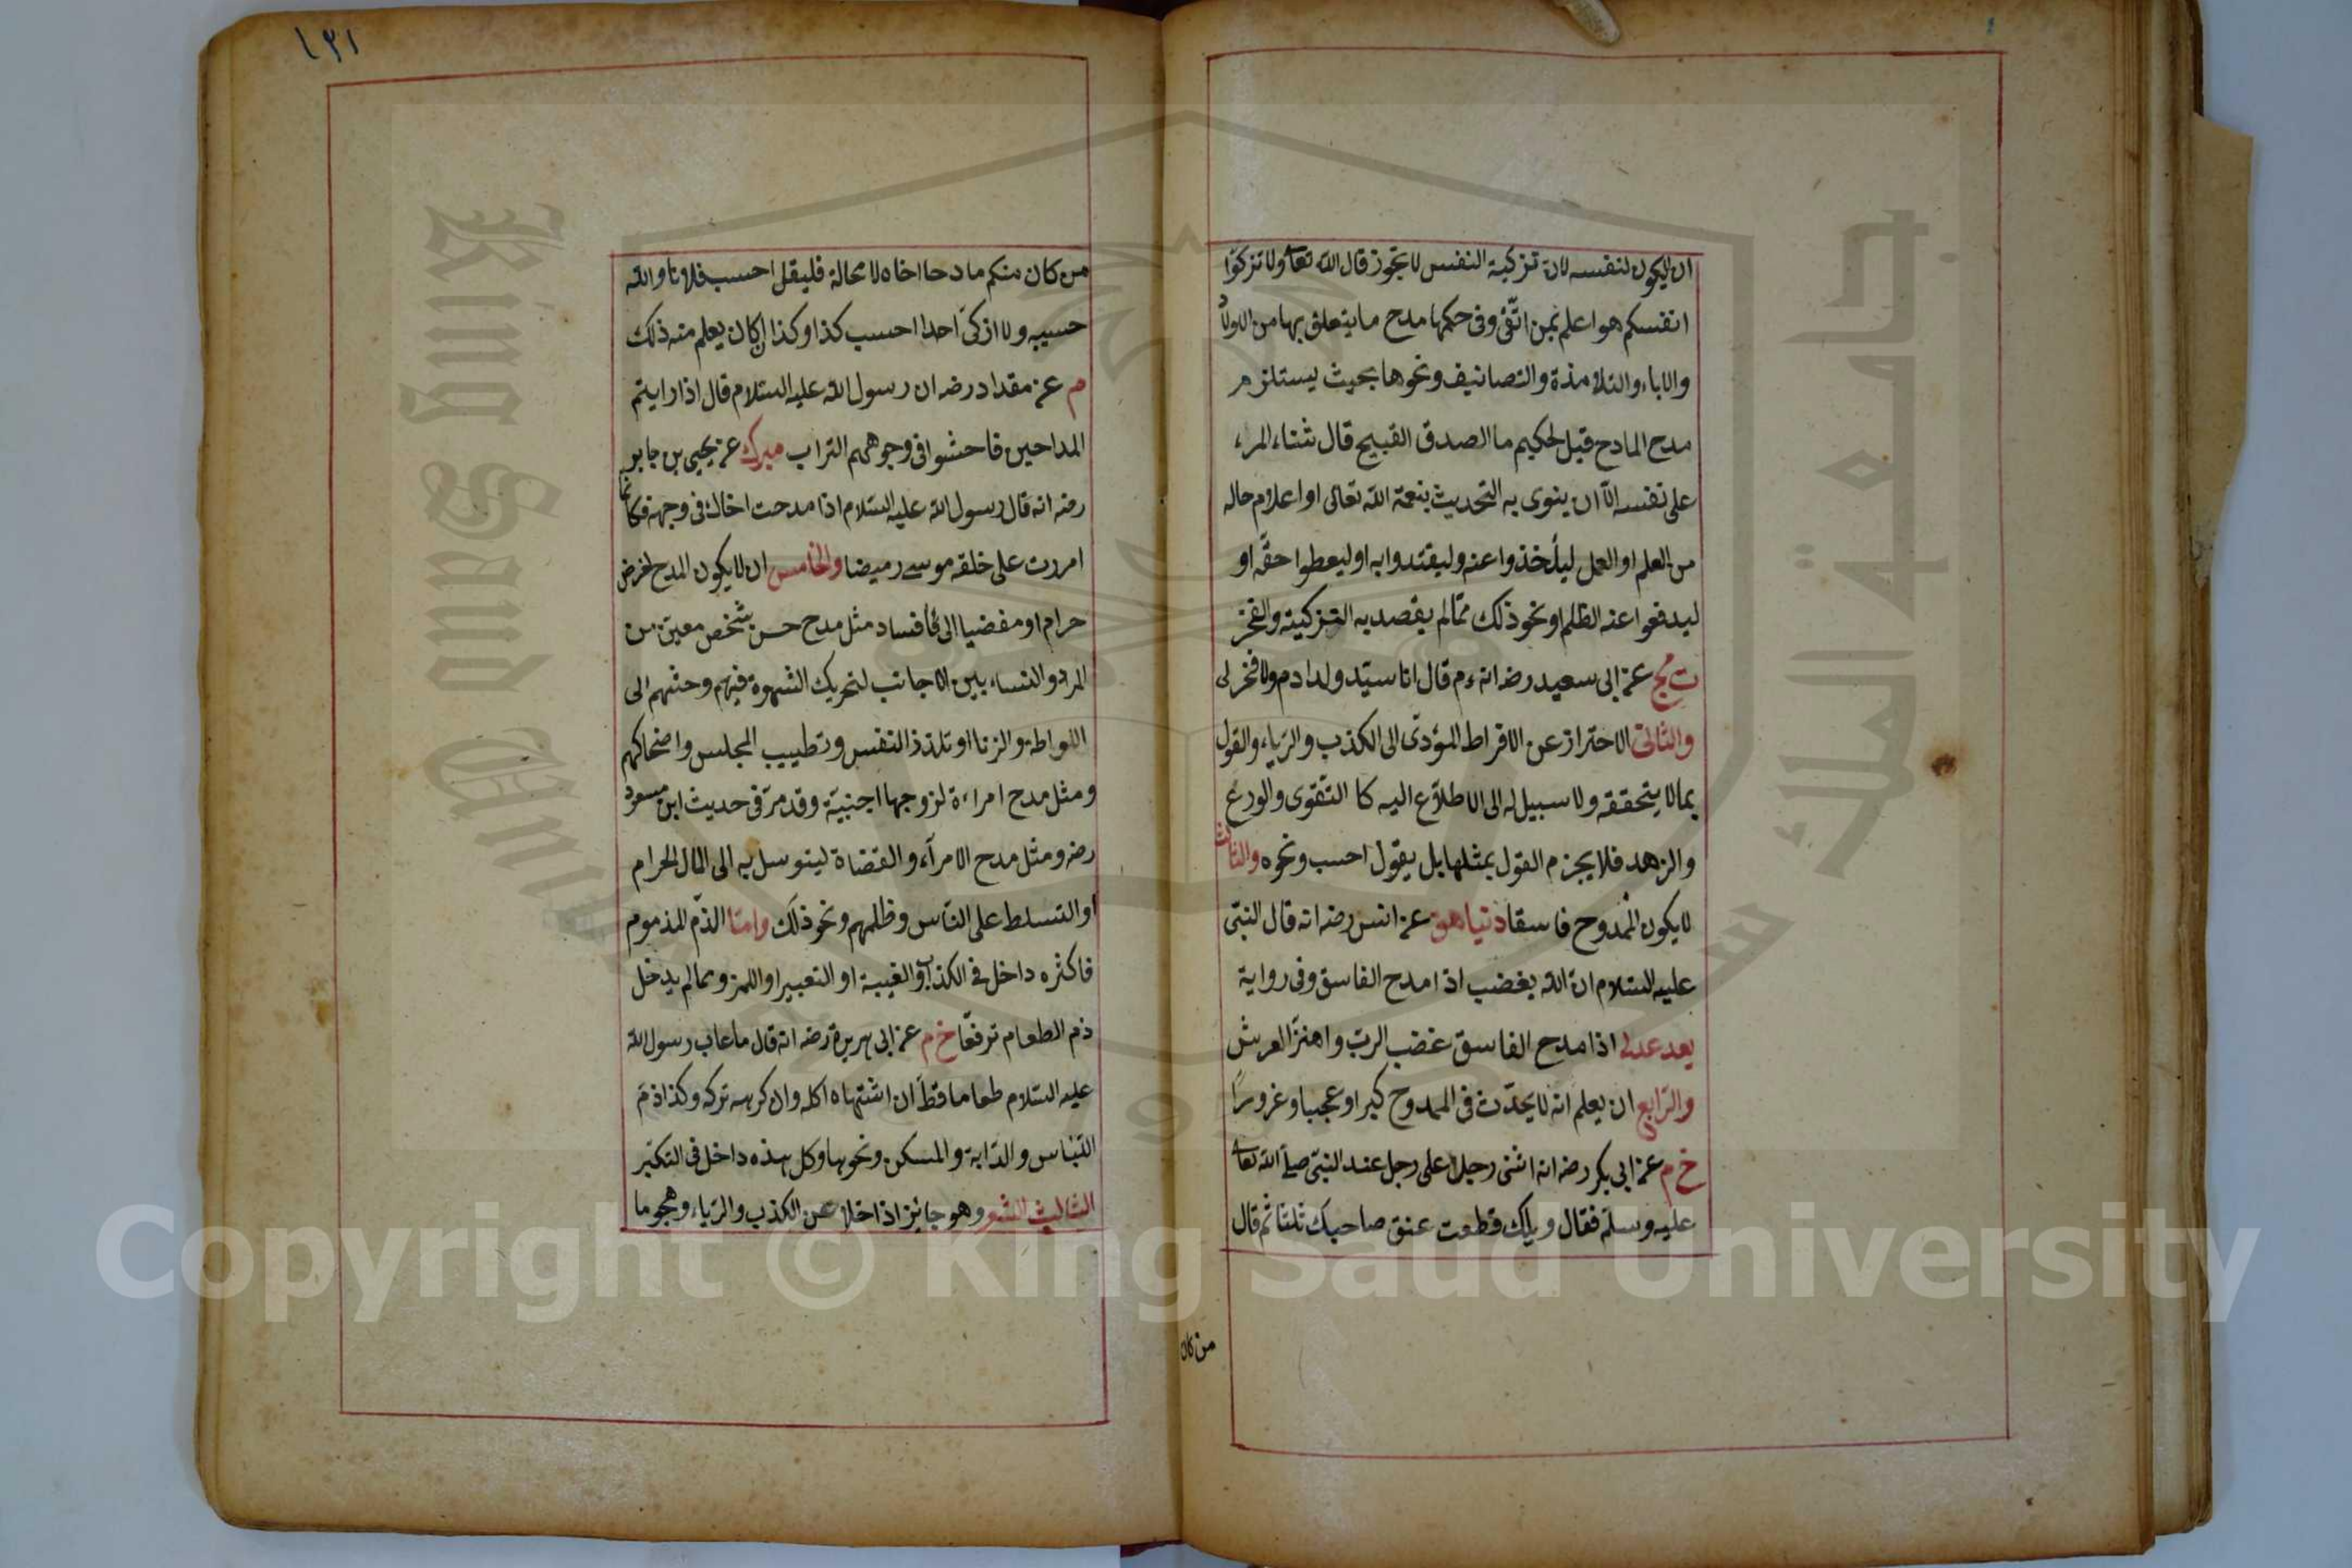 ان لايكون لنفسه لان تزكية النفس لا يجوز قال الله تعالى ولا تزكوا
انفسكم هو اعلم بمن اتقى وفى حكمها مدح ما يتعلق بها من الاولاد
والاباء والتلامذة والتصانيف ونحوها بحيث يستلزم
مدح المادح قيل لحكيم ما الصدق القبيح قال ثناء المرء
على نفسه الّا ان ينوى به التحديث بنعمة الله تعالى او اعلام حاله
من العلم او العمل ليأخذوا عنه وليقتدوا به او ليعطوا حقّه او
ليدفعوا عنه الظلم او نحو ذلك ممّا لم يقصد به التزكية والفخر
ت مج عن ابى سعيد رضه انه ءم قال انا سيّد ولد ادم ولا فخر لى
والثانى الاحتراز عن الافراط المؤدّى الى الكذب والرياء والقول
بما لا يتحققه ولا سبيل له الى الاطلاع اليه كا التّقوى والورع
والزهد فلا يجزم القول بمثلها بل يقول احسب ونحوه والثالث
لايكون الممدوح فاسقا دنيا هق عن انس رضه انه قال النبى
عليه السلام ان الله يغضب اذا مدح الفاسق وفى رواية
يعد عدى اذا مدح الفاسق غضب الرب واهتز العرش
والرّابع ان يعلم انه لا يحدّث فى الممدوح كبرا او عجبا او غرورًا
خ م عن ابى بكر رضه انه اثنى رجل على رجل عند النبى صلى الله تعالى
عليه وسلم فقال ويلك قطعت عنق صاحبك ثلثا ثم قال
من كان
١٣١
من كان منكم مادحا اخاه لا محالة فليقل احسب فلانا والله
حسيبه ولا ازكىّ احدا احسب كذا وكذا ان كان يعلم منه ذلك
م عن مقداد رضه ان رسول الله عليه السلام قال اذا رايتم
المداحين فاحثوا فى وجوههم التراب مبرك عن يحيى بن جابر
رضه انه قال رسول الله عليه السلام اذا مدحت اخاك فى وجهه فكانما
امررت على خلقه موسى رميضا والخامس ان لايكون المدح لغرض
حرام او مفضيا الى فساد مثل مدح حسن شخص معين من
المرد والنساء بين الاجانب لتحريك الشهوة فيهم وحثهم الى
اللواطة والزنا او تلذذ النفس وتطييب المجلس واضحاكهم
ومثل مدح امراءة لزوجها اجنبيّة وقد مرّ فى حديث ابن مسعود
رضه ومثل مدح الامرآء والقضاة ليتوسل به الى المال الحرام
او التسلط على الناس وظلمهم ونحو ذلك وامّا الذّم المذموم
فاكثره داخل فى الكذب او الغيبة او التعيير او اللمز ومما لم يدخل
ذم الطعام ترفّعا خ م عن ابى هريرة رضه انه قال ما عاب رسول الله
عليه السلام طعاما قط ان اشتهاه اكله وان كرهه تركه وكذا ذم
اللباس والدّابة والمسكن ونحوها وكل هذه داخل فى التكبّر
الثالث الشعر وهو جائز اذا خلا عن الكذب والرياء وهجو ما
King Saud University
جامعة الملك سعود
Copyright © King Saud University